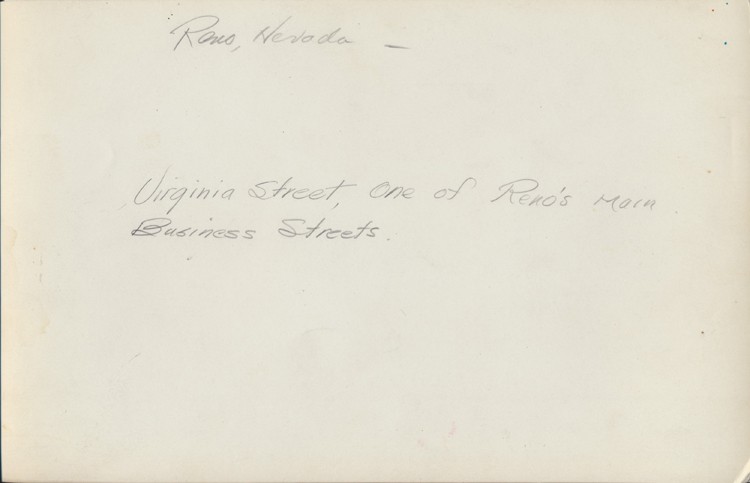 Reno, Nevada —
Virginia Street, One of Reno's Main
Business Streets.